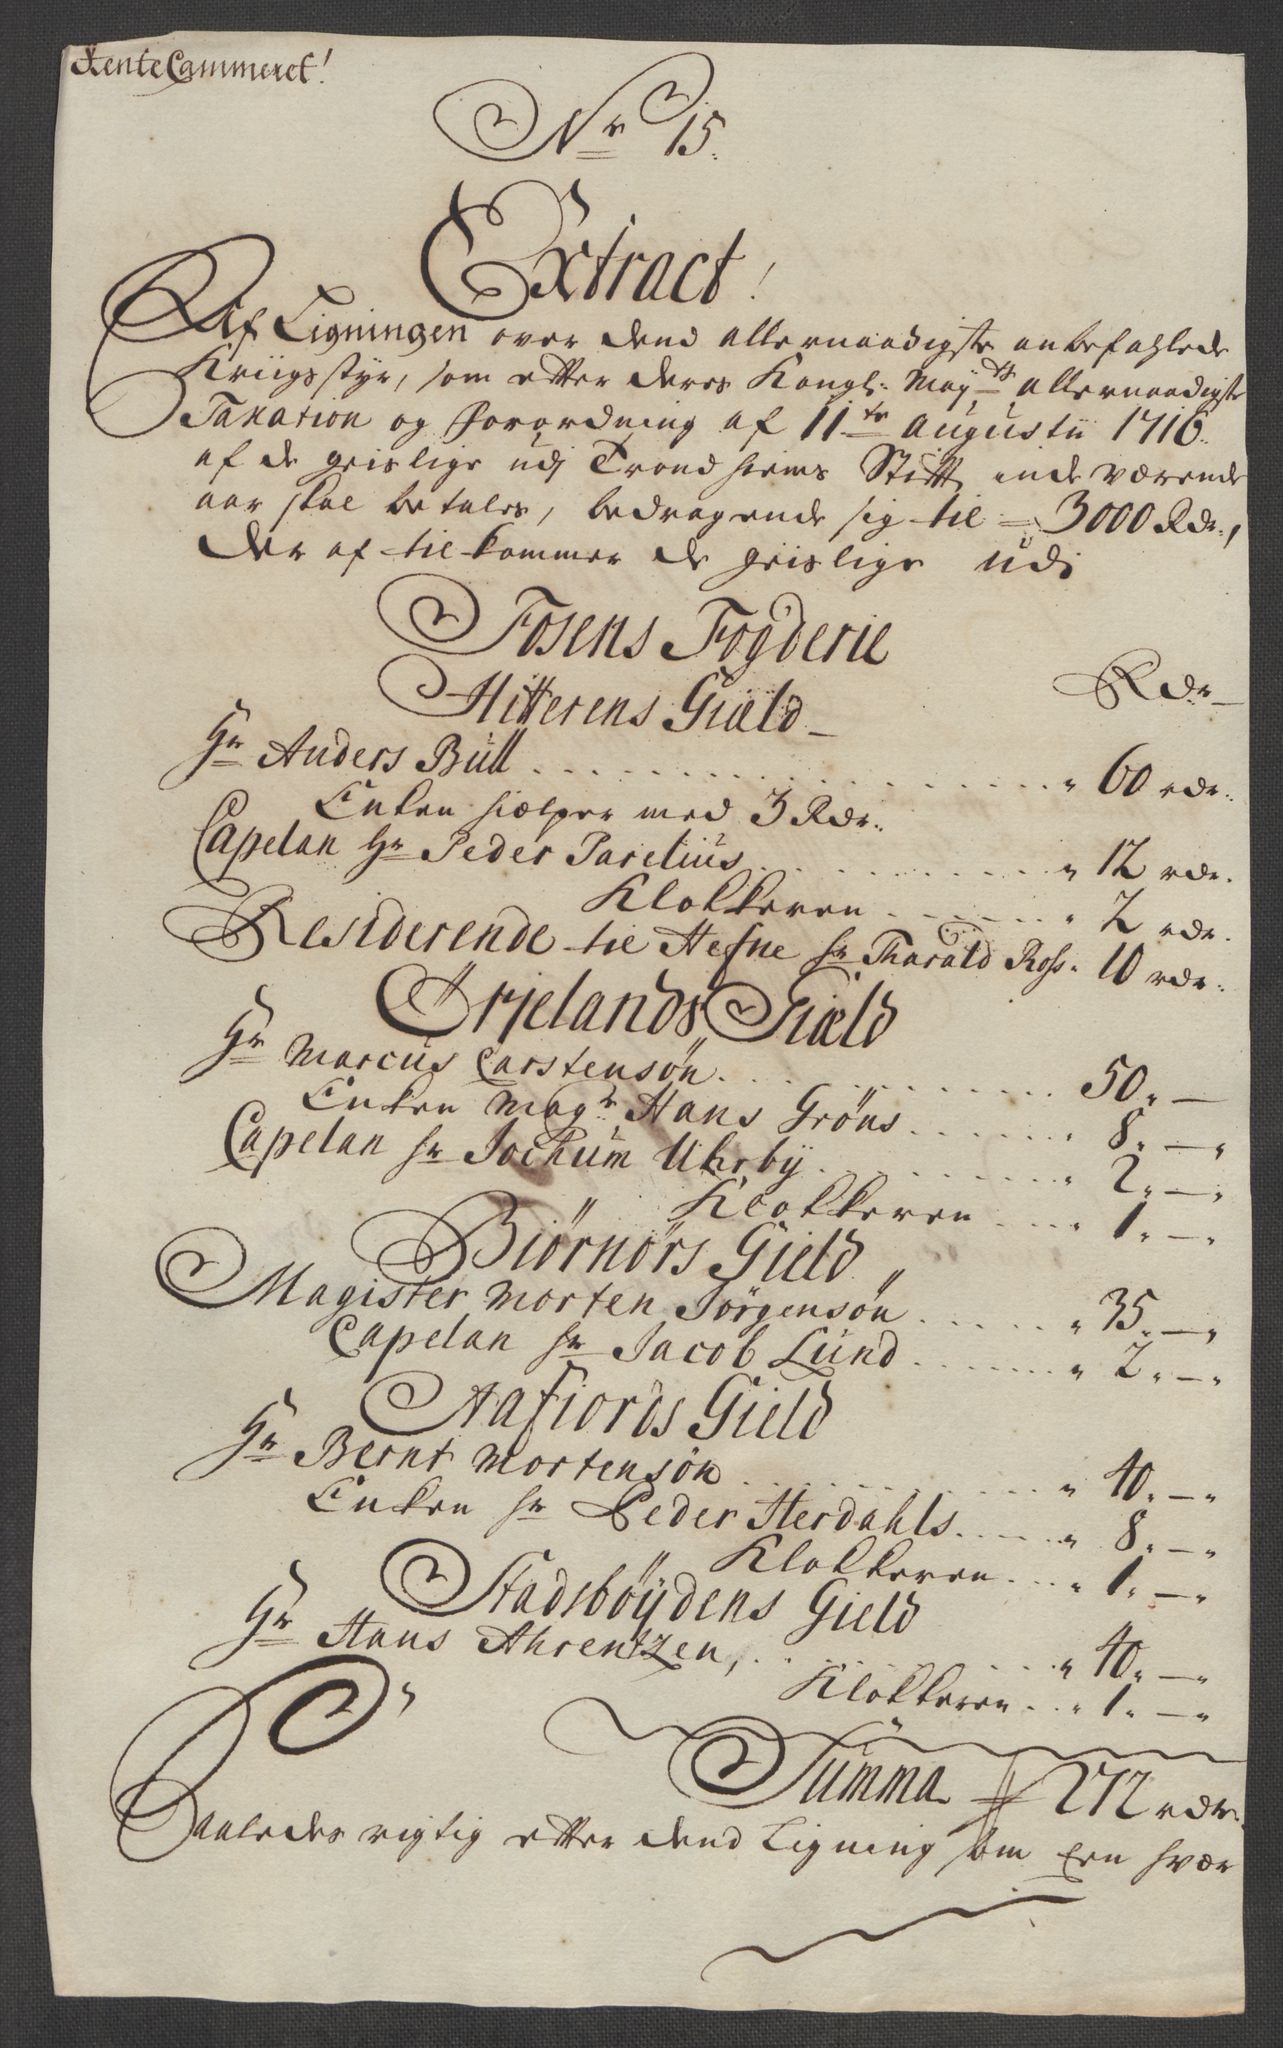 RenteCammeret!
Nr 15.
Extract!
Af Ligningen over dend allernaadigste anbefahlede
Kriigsstyr, som etter deres Kongl: Mayts allernaadigste
Taxation og Forordning af 11te Augustii 1716.
af de geislige udj Trondhiems Stift, indeværende
aar skal betales, bedragende sig til = 3000 Rdr.,
der af tilkommer de geislige udi
Fosens Fogderie
Hitterens Giæld Rdr
Hr Anders Bull 60 rdr.
Enken hielper med 3 Rdr.
Capelan Hr Peder Parelius 12 rdr.
Klokkeren 2 rdr.
Residerende til Hefne hr Tharald Ross. 10 rdr.
Ørjelands Giæld
Hr Marcus Carstensøn 50. —
Enken Magr Hans Grøns 8. —
Capelan hr Jochum Uhrby 2. —
Klokkeren 1. —
Biørnørs Gield
Magister Morten Jørgensøn 35. —
Capelan hr Jacob Lund 2. —
Aafiords Gield
Hr Bernt Mortensøn 40. —
Enken hr Peder Herdahls 8. —
Klokkeren 1. —
Stadsbøydens Gield
Hr Hans Ahrentzen, 40. —
Klokkeren 1. —
Summa 272 rdr.
Saaledes rigtig etter dend Ligning som Een hver